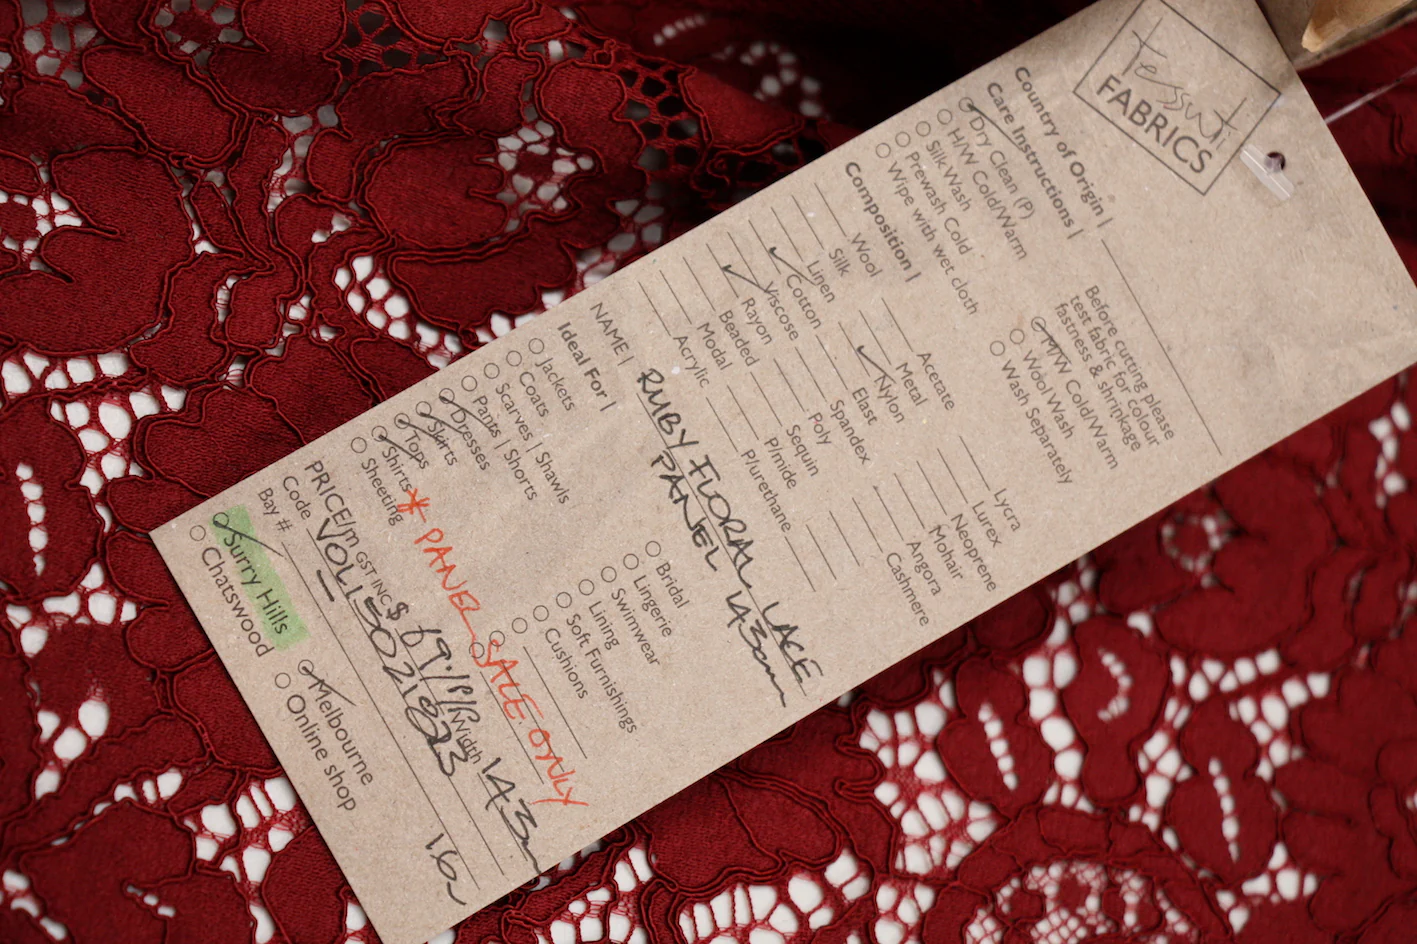 tessuti
FABRICS
Country of Origin |
Care Instructions |
Dry Clean (P)
H/W Cold/Warm
Silk Wash
Prewash Cold
Wipe with wet cloth
Before cutting please
test fabric for colour
fastness & shrinkage
M/W Cold/Warm
Wool Wash
Wash Separately
Composition |
Wool
Silk
Linen
Cotton
Viscose
Rayon
Beaded
Modal
Acrylic
Acetate
Metal
Nylon
Elast
Spandex
Poly
Sequin
P/mide
P/urethane
Lycra
Lurex
Neoprene
Mohair
Angora
Cashmere
NAME | RUBY FLORAL LACE
PANEL 143cm
Ideal For |
Jackets
Coats
Scarves | Shawls
Pants | Shorts
Dresses
Skirts
Tops
Shirts
Sheeting
Bridal
Lingerie
Swimwear
Lining
Soft Furnishings
Cushions
* PANEL SALE ONLY
PRICE/m GST INC $ 69 Width 143
Code
Bay #
Surry Hills
Chatswood
Melbourne
Online shop